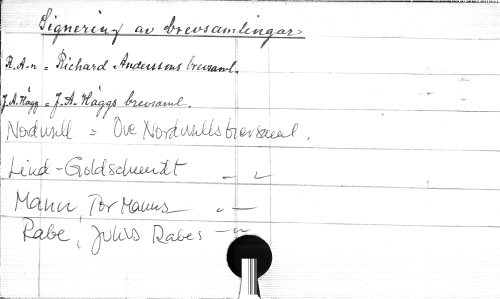 Signering av brevsamlingar
R.A-n = Richard Anderssons brevsaml.
J.A. Hägg = J.A. Häggs brevsaml.
Nordwall = Ove Nordwalls brevsaml.
Lind-Goldschmidt — " —
Mann, Tor Manns — " —
Rabe, Julius Rabes — " —